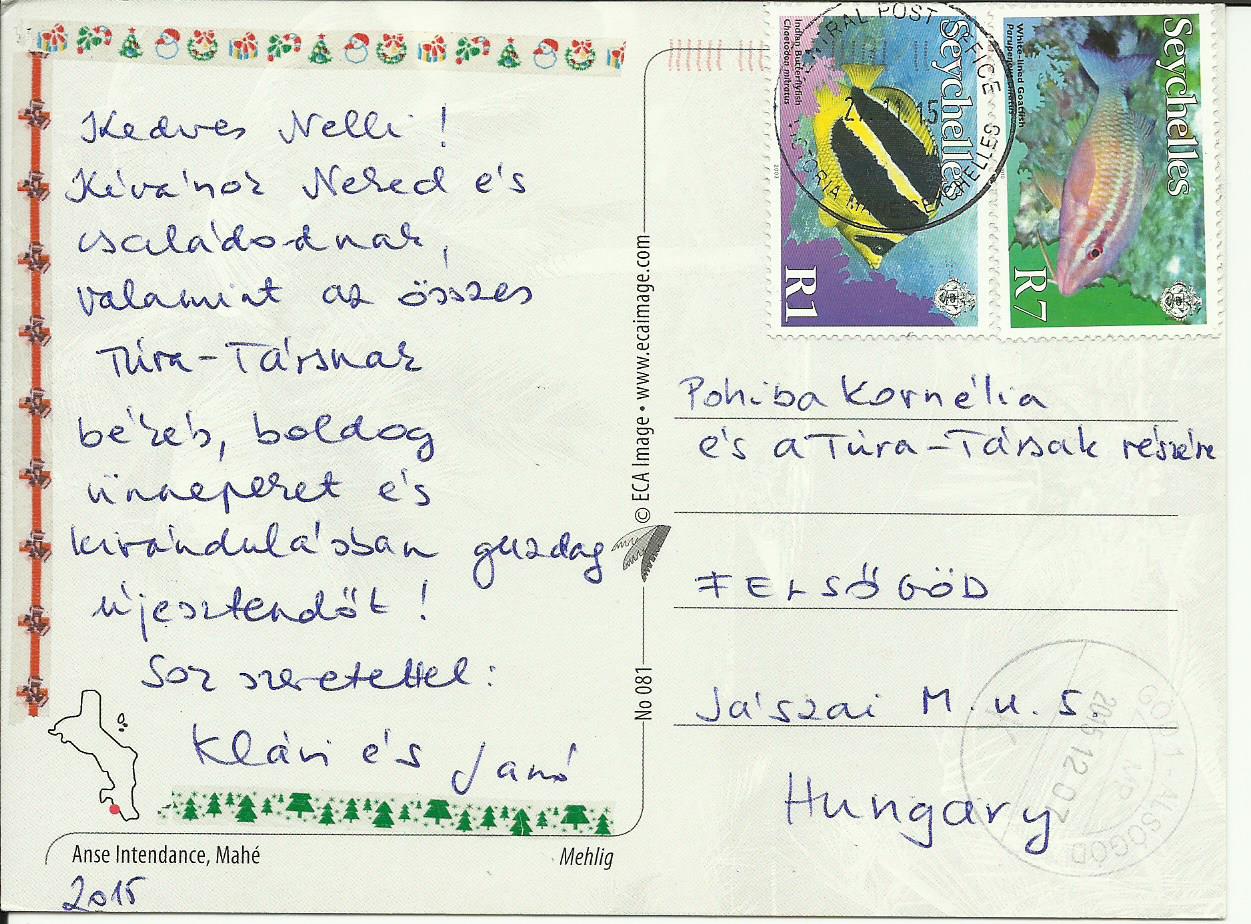 Kedves Nelli!
Kívánok Neked és
családodnak,
valamint az összes
Túra-Társnak
békés, boldog
ünnepeket és
kirándulásban gazdag
újesztendőt!
Sok szeretettel:
Klári és Janó
Anse Intendance, Mahé
Mehlig
2015
No 081
© ECA Image • www.ecaimage.com
Indian Butterflyfish
Chaetodon mitratus
Seychelles
R1
White-lined Goatfish
Seychelles
R7
CENTRAL POST OFFICE
VICTORIA MAHE SEYCHELLES
Pohiba Kornélia
és a Túra-Társak részére
FELSŐGÖD
Jászai M. u. 5.
Hungary
2015 12 07